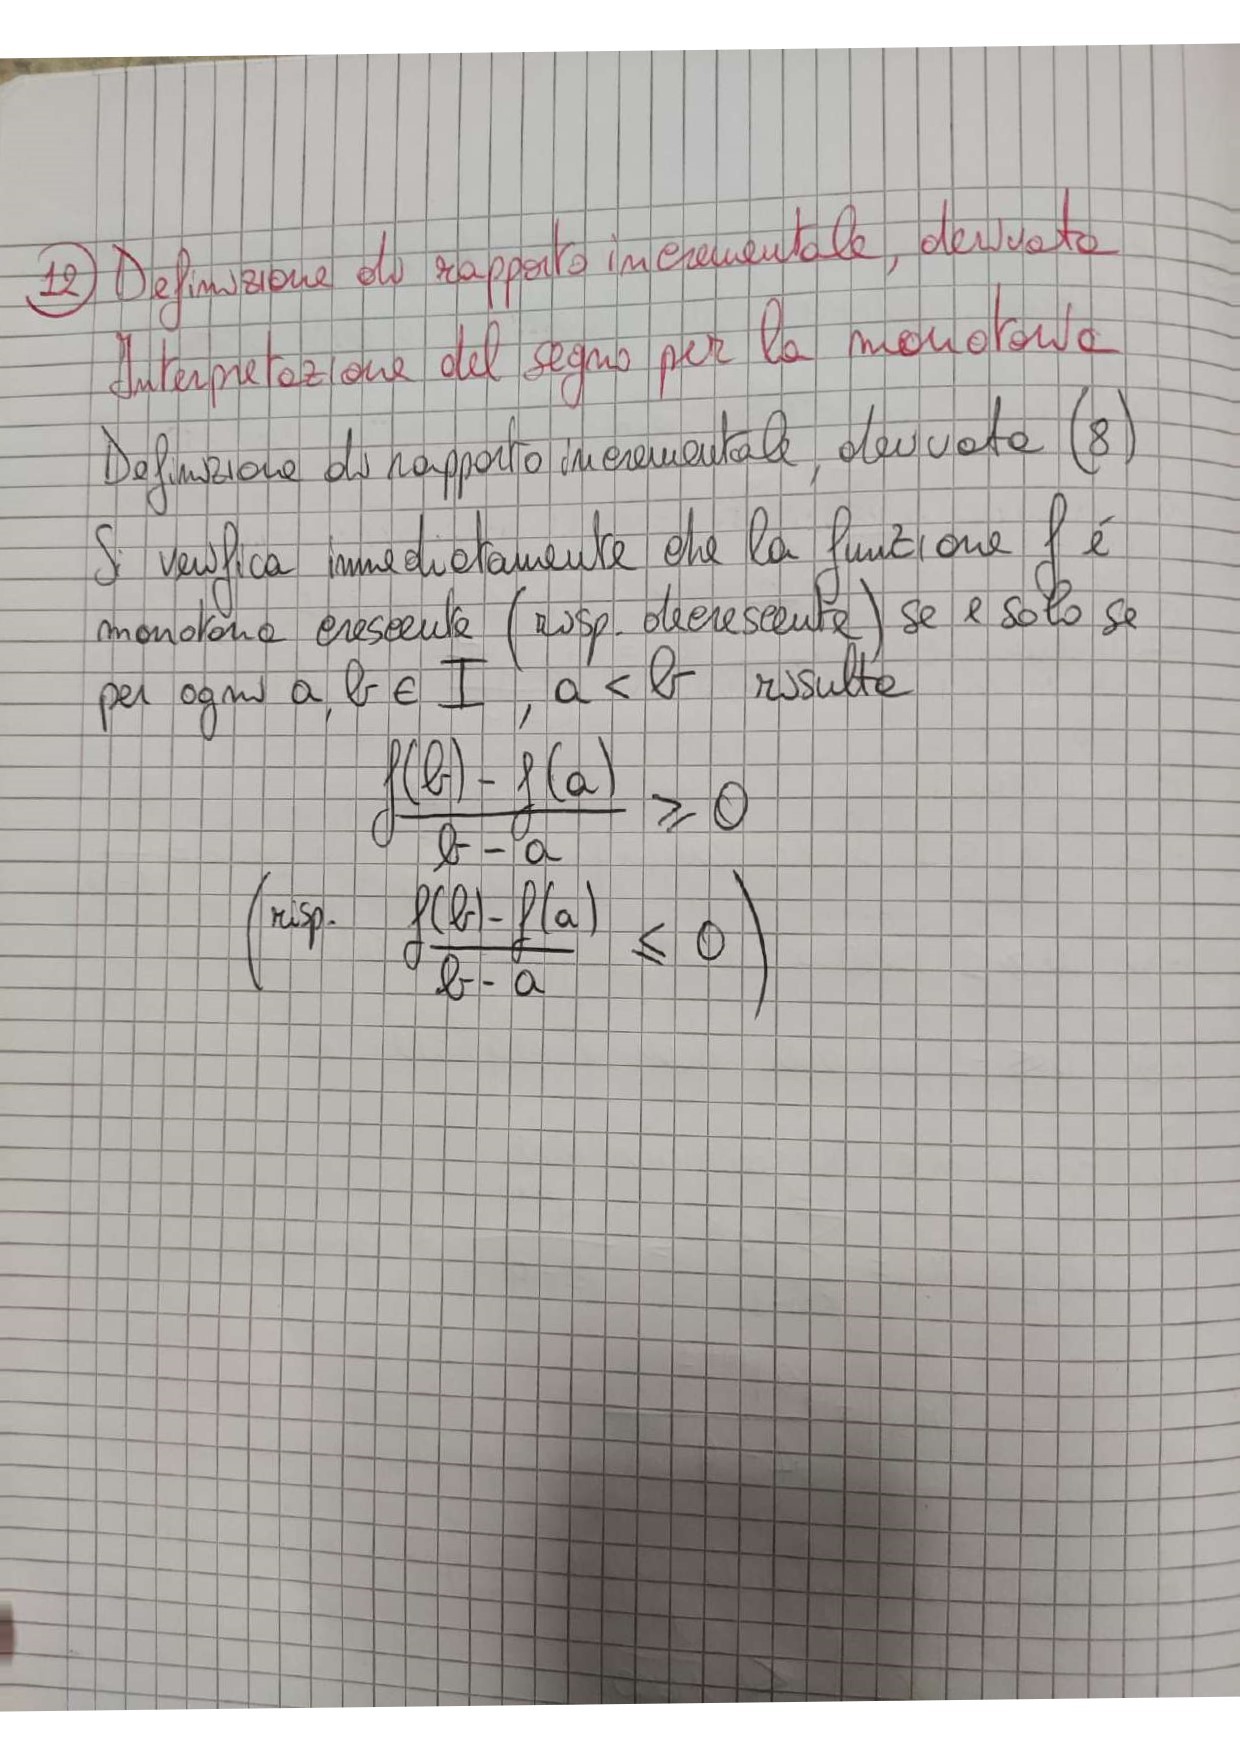 12) Definizione di rapporto incrementale, derivata
Interpretazione del segno per la monotonia
Definizione di rapporto incrementale, derivata (8)
Si verifica immediatamente che la funzione f é
monotona crescente (risp. decrescente) se e solo se
per ogni a, b ∈ I, a < b risulta
f(b) - f(a)
/ b - a ≥ 0
(risp. f(b) - f(a)
/ b - a ≤ 0)